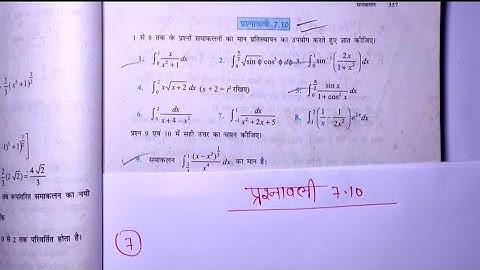 समाकलन 337
प्रश्नावली 7.10
1 से 8 तक के प्रश्नों समाकलनों का मान प्रतिस्थापन का उपयोग करते हुए ज्ञात कीजिए।
1. ∫₀¹ x/(x²+1) dx 2. ∫₀^(π/2) √sin ϕ cos⁵ ϕ dϕ 3. ∫₀¹ sin⁻¹(2x/(1+x²)) dx
4. ∫₀² x√(x+2) dx (x + 2 = t² रखिए) 5. ∫₀^(π/2) sin x/(1+cos² x) dx
6. ∫₀² dx/(x+4−x²) 7. ∫₋₁¹ dx/(x²+2x+5) 8. ∫₁² (1/x − 1/(2x²)) e^(2x) dx
प्रश्न 9 एवं 10 में सही उत्तर का चयन कीजिए।
9. समाकलन ∫_(1/3)^1 (x−x³)^(1/3)/x⁴ dx का मान है:
2/3 (x⁵+1)^(3/2)
−1)³ + 1)^(3/2)]
2/3 (2√2) = 4√2/3
रूपांतरित समाकलन का नयी
9 से 2 तक परिवर्तित होता है।
प्रश्नावली 7.10
7